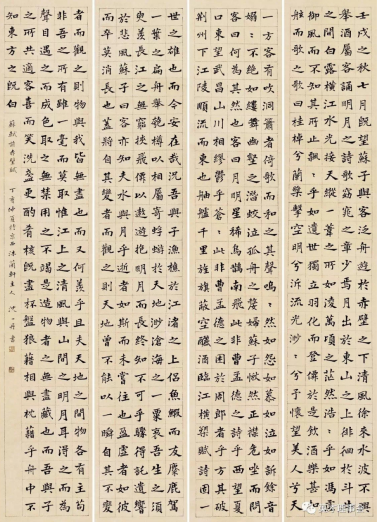 壬戌之秋七月既望蘇子與客泛舟遊於赤壁之下清風徐來水波不興
舉酒屬客誦明月之詩歌窈窕之章少焉月出於東山之上徘徊於斗牛
之間白露橫江水光接天縱一葦之所如凌萬頃之茫然浩浩乎如馮虛
御風而不知其所止飄飄乎如遺世獨立羽化而登僊於是飲酒樂甚扣
舷而歌之歌曰桂棹兮蘭槳擊空明兮泝流光渺渺兮予懷望美人兮天
一方客有吹洞簫者倚歌而和之其聲嗚嗚然如怨如慕如泣如訴餘音
嫋嫋不絕如縷舞幽壑之潛蛟泣孤舟之嫠婦蘇子愀然正襟危坐而問
客曰何為其然也客曰月明星稀烏鵲南飛此非曹孟德之詩乎西望夏
口東望武昌山川相繆鬱乎蒼蒼此非曹孟德之困於周郎者乎方其破
荊州下江陵順流而東也舳艫千里旌旗蔽空釃酒臨江橫槊賦詩固一
世之雄也而今安在哉況吾與子漁樵於江渚之上侶魚鰕而友麋鹿駕
一葉之扁舟舉匏樽以相屬寄蜉蝣於天地渺滄海之一粟哀吾生之須
臾羨長江之無窮挾飛僊以遨遊抱明月而長終知不可乎驟得託遺響
於悲風蘇子曰客亦知夫水與月乎逝者如斯而未嘗往也盈虛者如彼
而卒莫消長也蓋將自其變者而觀之則天地曾不能以一瞬自其不變
者而觀之則物與我皆無盡也而又何羨乎且夫天地之間物各有主苟
非吾之所有雖一毫而莫取惟江上之清風與山間之明月耳得之而為
聲目遇之而成色取之無禁用之不竭是造物者之無盡藏也而吾與子
之所共適客喜而笑洗盞更酌肴核既盡杯盤狼籍相與枕藉乎舟中不
知東方之既白
蘇軾前赤壁賦 丁酉